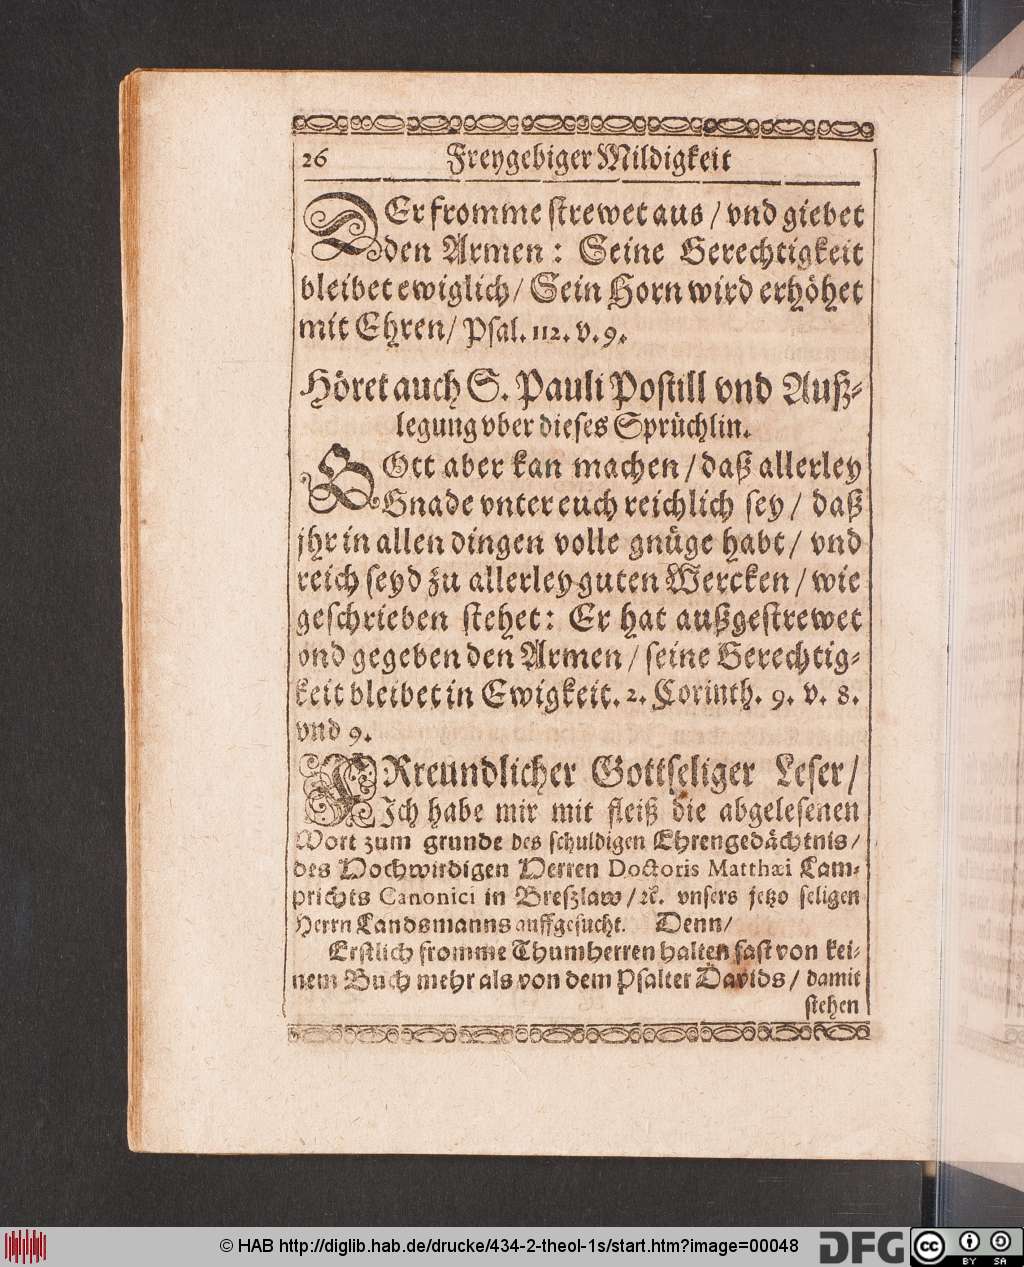 26 Freygebiger Mildigkeit
DEr fromme strewet aus / vnd giebet
den Armen : Seine Gerechtigkeit
bleibet ewiglich / Sein Horn wird erhöhet
mit Ehren / Psal. 112. v. 9.
Höret auch S. Pauli Postill vnd Auß-
legung vber dieses Sprüchlin.
GOtt aber kan machen / daß allerley
Gnade vnter euch reichlich sey / daß
jhr in allen dingen volle gnüge habt / vnd
reich seyd zu allerley guten Wercken / wie
geschrieben stehet: Er hat außgestrewet
vnd gegeben den Armen / seine Gerechtig-
keit bleibet in Ewigkeit. 2. Corinth. 9. v. 8.
vnd 9.
FRreundlicher Gottseliger Leser /
Ich habe mir mit fleiß die abgelesenen
Wort zum grunde des schuldigen Ehrengedächtnis /
des Hochwirdigen Herren Doctoris Matthæi Lam-
prichts Canonici in Breßlaw / ꝛc. vnsers jetzo seligen
Herrn Landsmanns auffgesucht. Denn /
Erstlich fromme Thumherren halten fast von kei-
nem Buch mehr als von dem Psalter Davids / damit
stehen
© HAB http://diglib.hab.de/drucke/434-2-theol-1s/start.htm?image=00048
DFG
cc BY SA